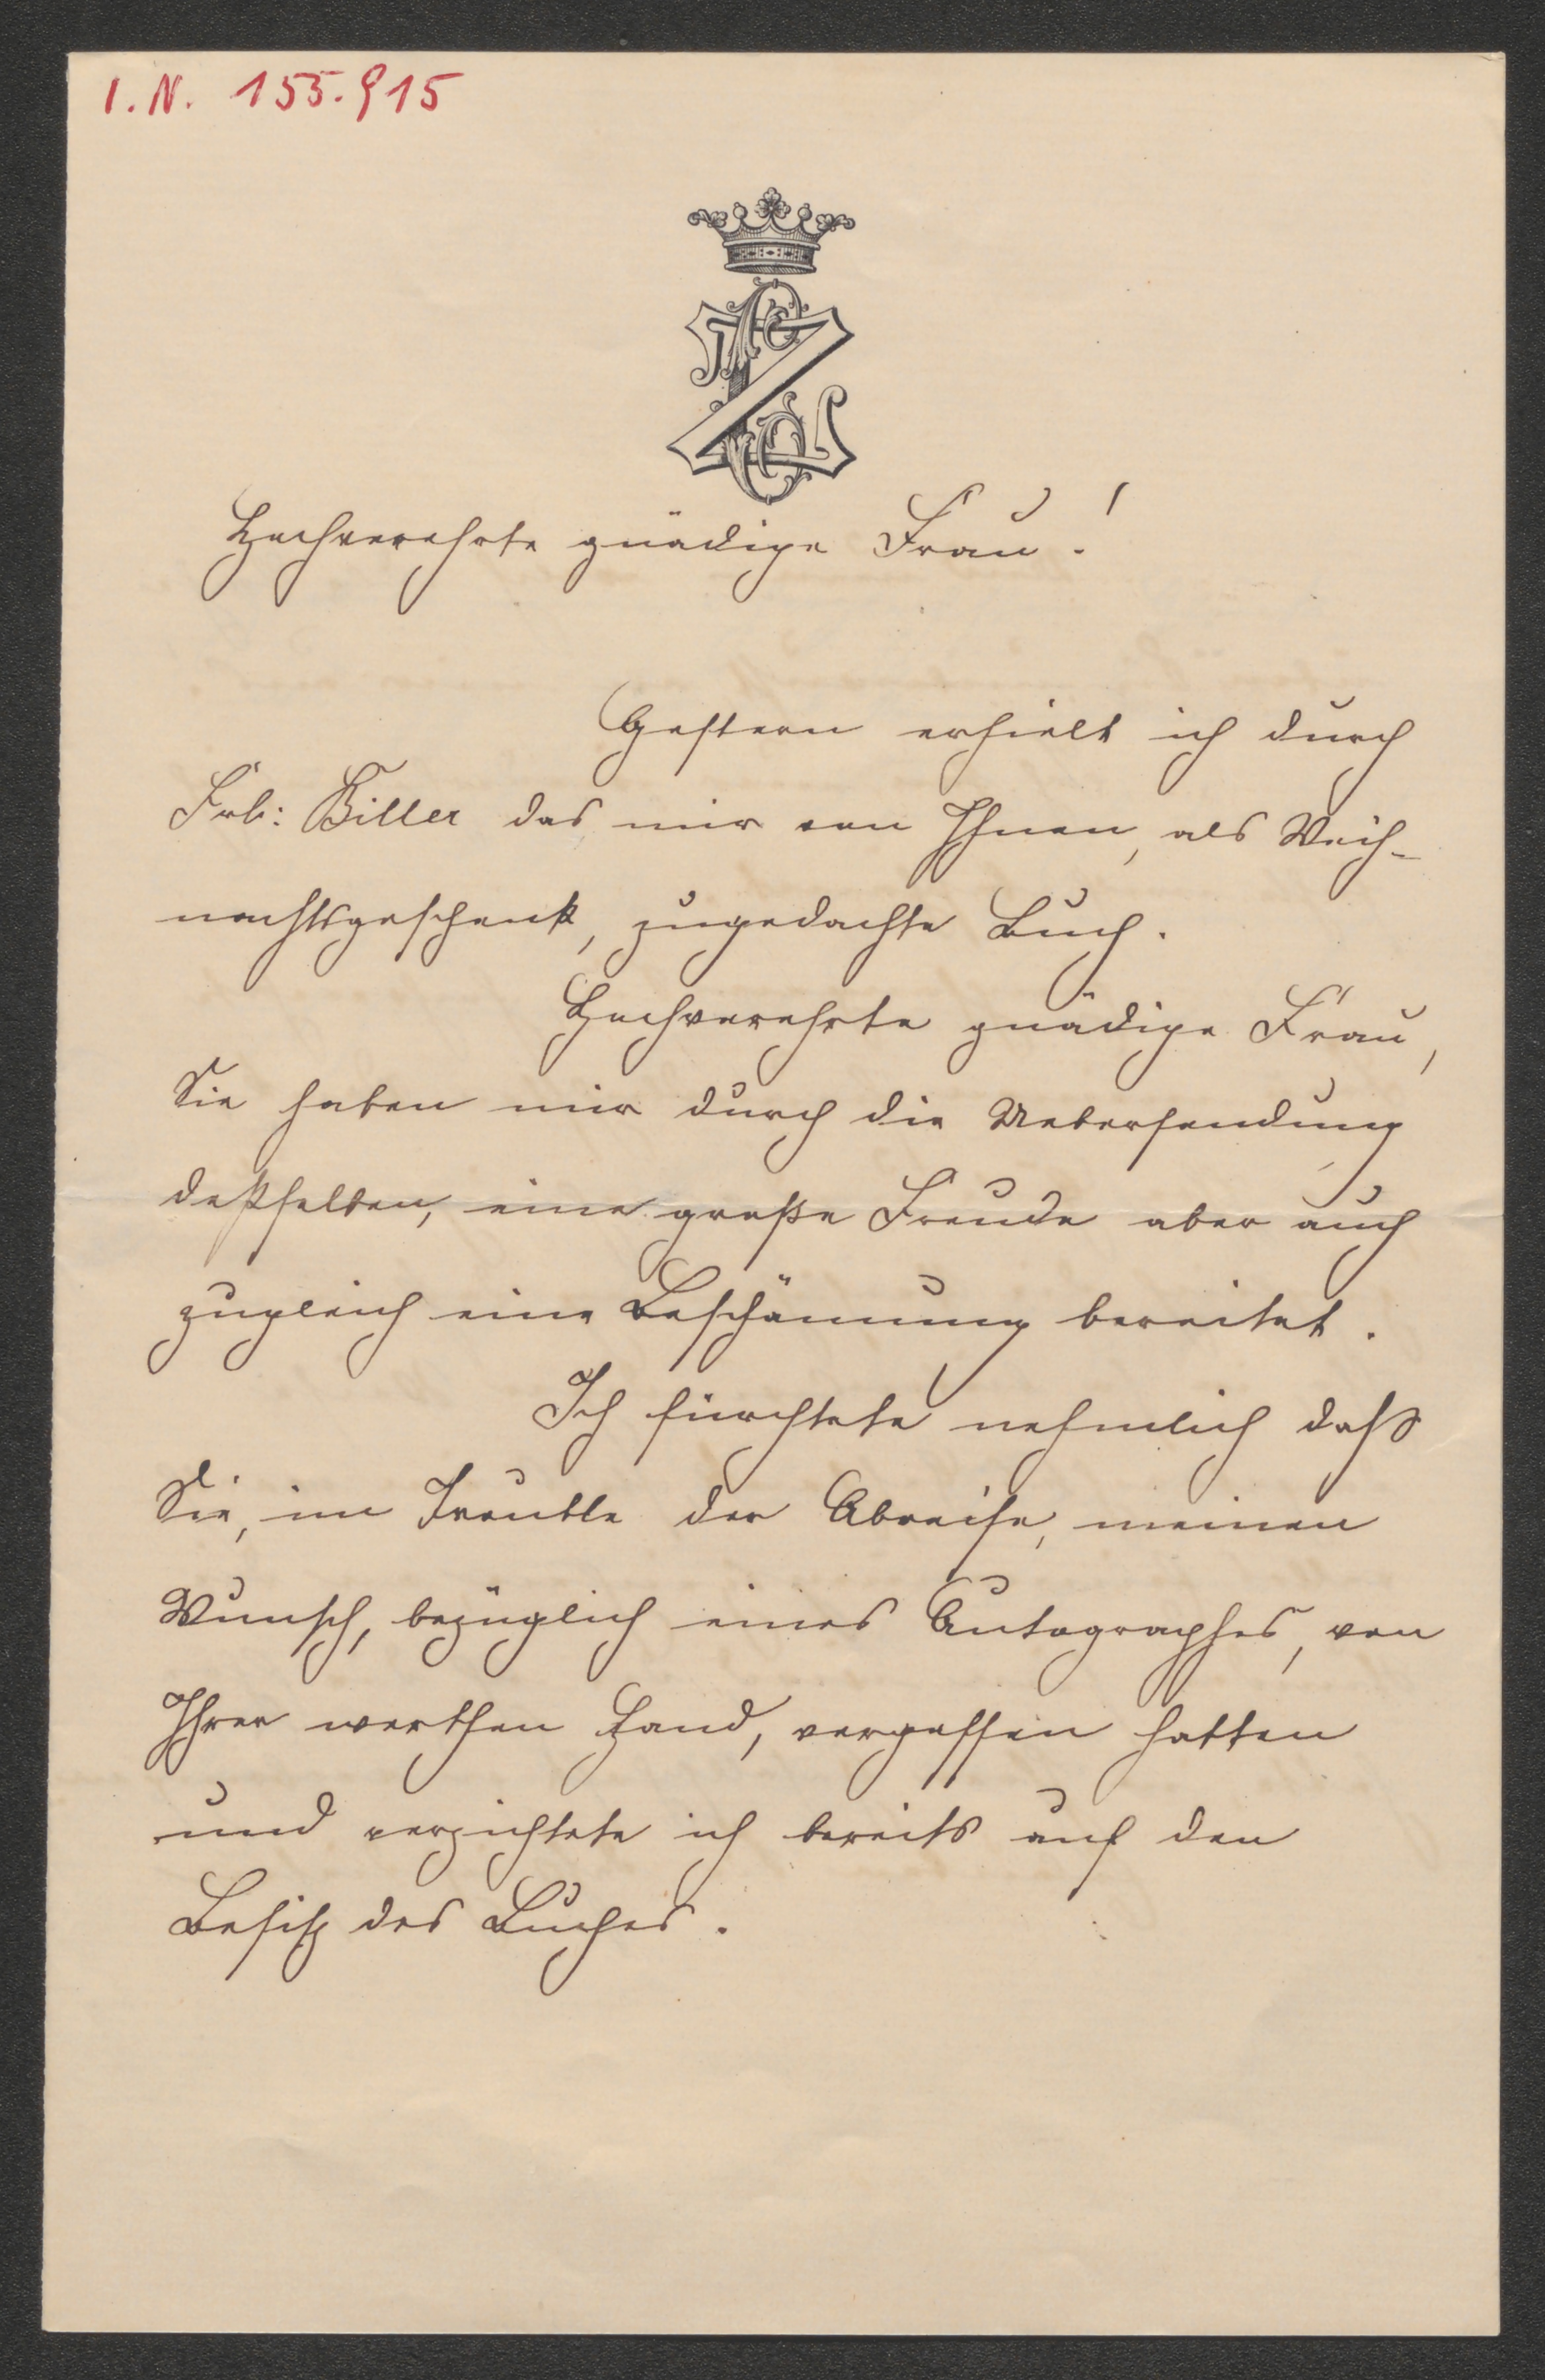 I.N. 155.915
Hochverehrte gnädige Frau!
Gestern erhielt ich durch
Frl: Biller das mir von Ihnen, als Weih-
nachtsgeschenk, zugedachte Buch.
Hochverehrte gnädige Frau,
Sie haben mir durch die Uebersendung
deßselben, eine große Freude aber auch
zugleich eine Beschämung bereitet.
Ich fürchtete nehmlich daß
Sie, im Trouble der Abreise, meinen
Wunsch, bezüglich eines Autographes, von
Ihrer werthen Hand, vergessen hatten
und verzichtete ich bereits auf den
Besitz des Buches.